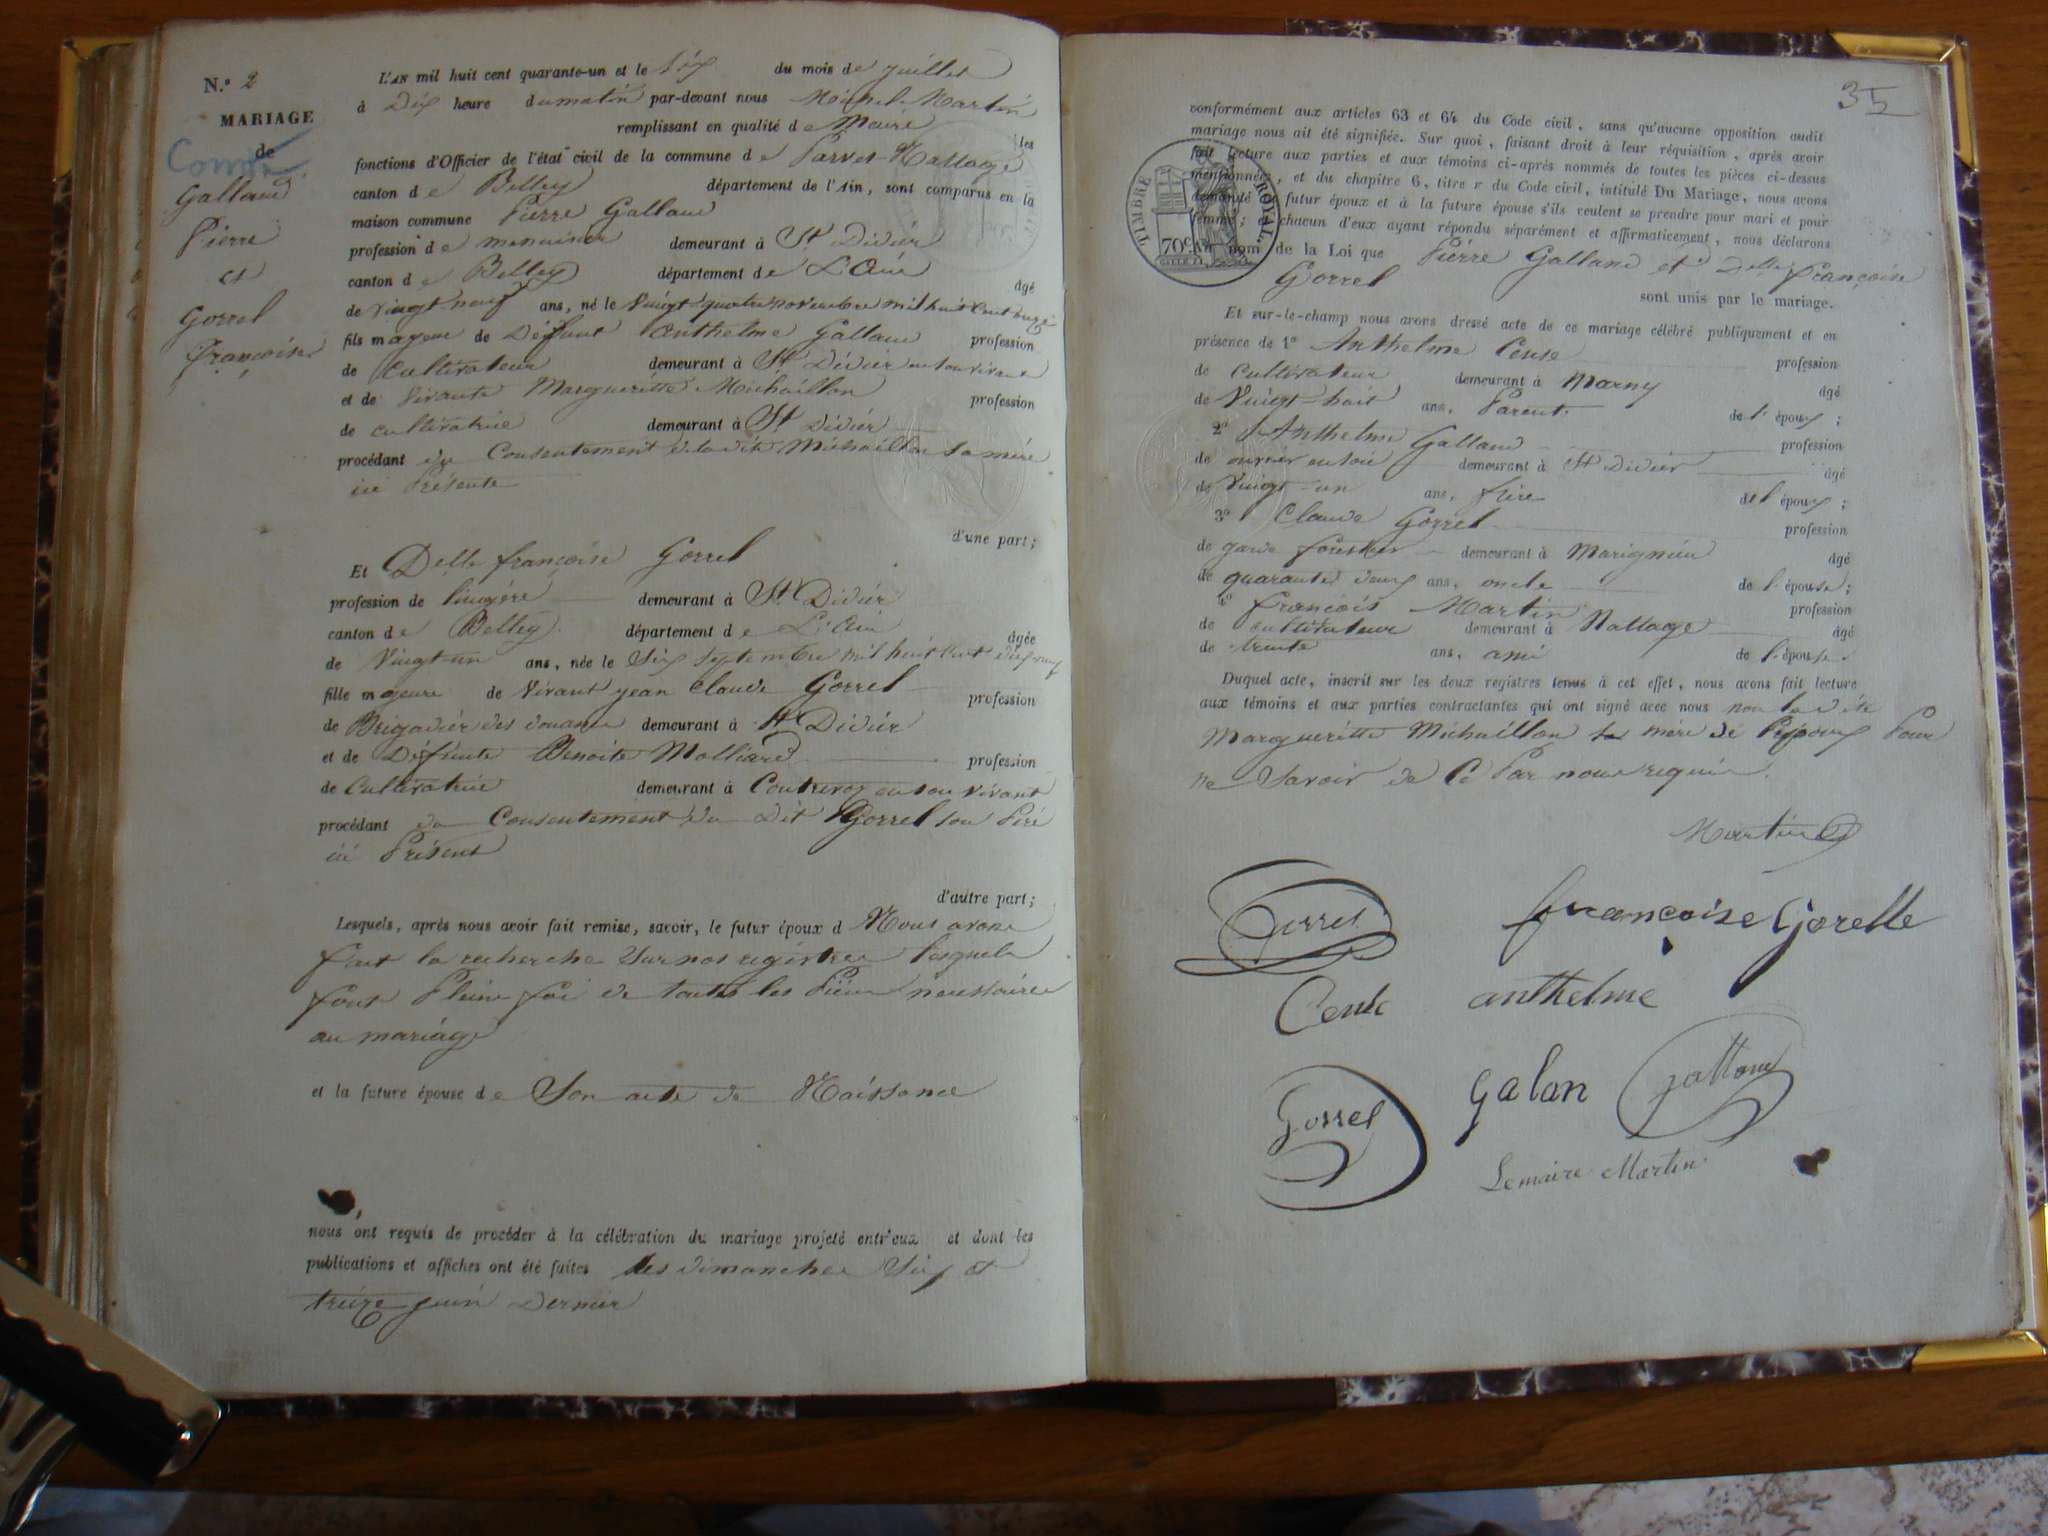 N.º 2
MARIAGE
de
Galland
Pierre
et
Gorrel
françoise
L'AN mil huit cent quarante-un et le Six du mois de juillet
à Dix heure du matin par-devant nous Michel Martin
remplissant en qualité de Maire les
fonctions d'Officier de l'état civil de la commune de Parves-Nattage
canton de Belley département de l'Ain, sont comparus en la
maison commune Pierre Galland
profession de menuisier demeurant à St Didiér
canton de Belley département de L'Ain âgé
de vingt neuf ans, né le Vingt quatre novembre mil huit Cent onze
fils majeur de Défunt Anthelme Galland profession
de Cultivateur demeurant à St Didiér en son vivant
et de Vivante Marguerítte Michaillon profession
de cultivatrice demeurant à St Didiér
procédant du Consentement de la dite Michaillon sa mére
ici Présente
d'une part;
Et Delle françoise Gorrel
profession de lingére demeurant à St Didiér
canton de Belley département de L'Ain âgée
de Vingt-un ans, née le Six Septembre mil huit Cent dix neuf
fille majeure de Vivant jean Claude Gorrel profession
de Brigadiér des douanes demeurant à St Didiér
et de Défunte Benoite Molliard profession
de Cultivatrice demeurant à Contrevoz en son vivant
procédant du Consentement du Dit Gorrel son Pére
ici Présent
d'autre part;
Lesquels, après nous avoir fait remise, savoir, le futur époux d Nous avons
fait la recherche Sur nos registres lesquels
font Pleine foi de toutes les Piéces nécessaires
au mariage
et la future épouse de Son acte de Naissance
nous ont requis de procéder à la célébration du mariage projeté entr'eux et dont les
publications et affiches ont été faites les dimanches Six et
treize juin Dernier
35
conformément aux articles 63 et 64 du Code civil, sans qu'aucune opposition audit
mariage nous ait été signifiée. Sur quoi, faisant droit à leur réquisition, après avoir
fait lecture aux parties et aux témoins ci-après nommés de toutes les pièces ci-dessus
mentionnées, et du chapitre 6, titre v du Code civil, intitulé Du Mariage, nous avons
demandé futur époux et à la future épouse s'ils veulent se prendre pour mari et pour
femme; et chacun d'eux ayant répondu séparément et affirmativement, nous déclarons
nom de la Loi que Piérre Galland et Delle françoise
Gorrel sont unis par le mariage.
TIMBRE ROYAL
70 C.
Et sur-le-champ nous avons dressé acte de ce mariage célébré publiquement et en
présence de 1º Anthelme profession
de Cultivateur demeurant à âgé
de Vingt-huit ans, Parent de l'époux;
2º Anthelme Galland profession
de ouvriér en soie demeurant à St Didiér âgé
de Vingt-un ans, frére de l'époux;
3º Claude Gorrel profession
de garde forestier demeurant à Marignieu âgé
de quarante deux ans, oncle de l'épouse;
4º françois Martin profession
de cultivateur demeurant à Nattage âgé
de trente ans, ami de l'épouse.
Duquel acte, inscrit sur les deux registres tenus à cet effet, nous avons fait lecture
aux témoins et aux parties contractantes qui ont signé avec nous non la dite
Marguerítte Michaillon mére de l'époux Pour
ne Savoir de Ce Par nous requise.
Martin
Gorrel
françoise Gorelle
anthelme
galan
Galland
Gorrel
Lemaire Martin